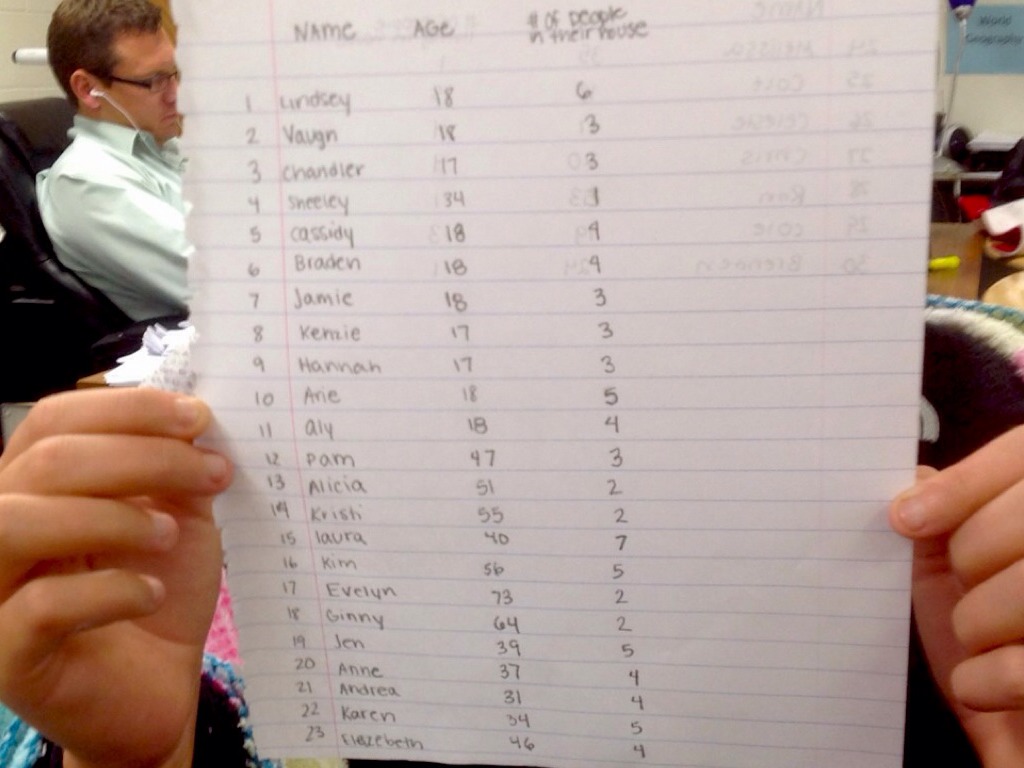 NAME AGE # of people in their house
1 Lindsey 18 6
2 Vaugn 18 3
3 Chandler 17 3
4 Sheeley 34 1
5 Cassidy 18 4
6 Braden 18 4
7 Jamie 18 3
8 Kenzie 17 3
9 Hannah 17 3
10 Arie 18 5
11 Aly 18 4
12 Pam 47 3
13 Alicia 51 2
14 Kristi 55 2
15 Laura 40 7
16 Kim 56 5
17 Evelyn 73 2
18 Ginny 64 2
19 Jen 39 5
20 Anne 37 4
21 Andrea 31 4
22 Karen 54 5
23 Elezebeth 46 4
World Geography